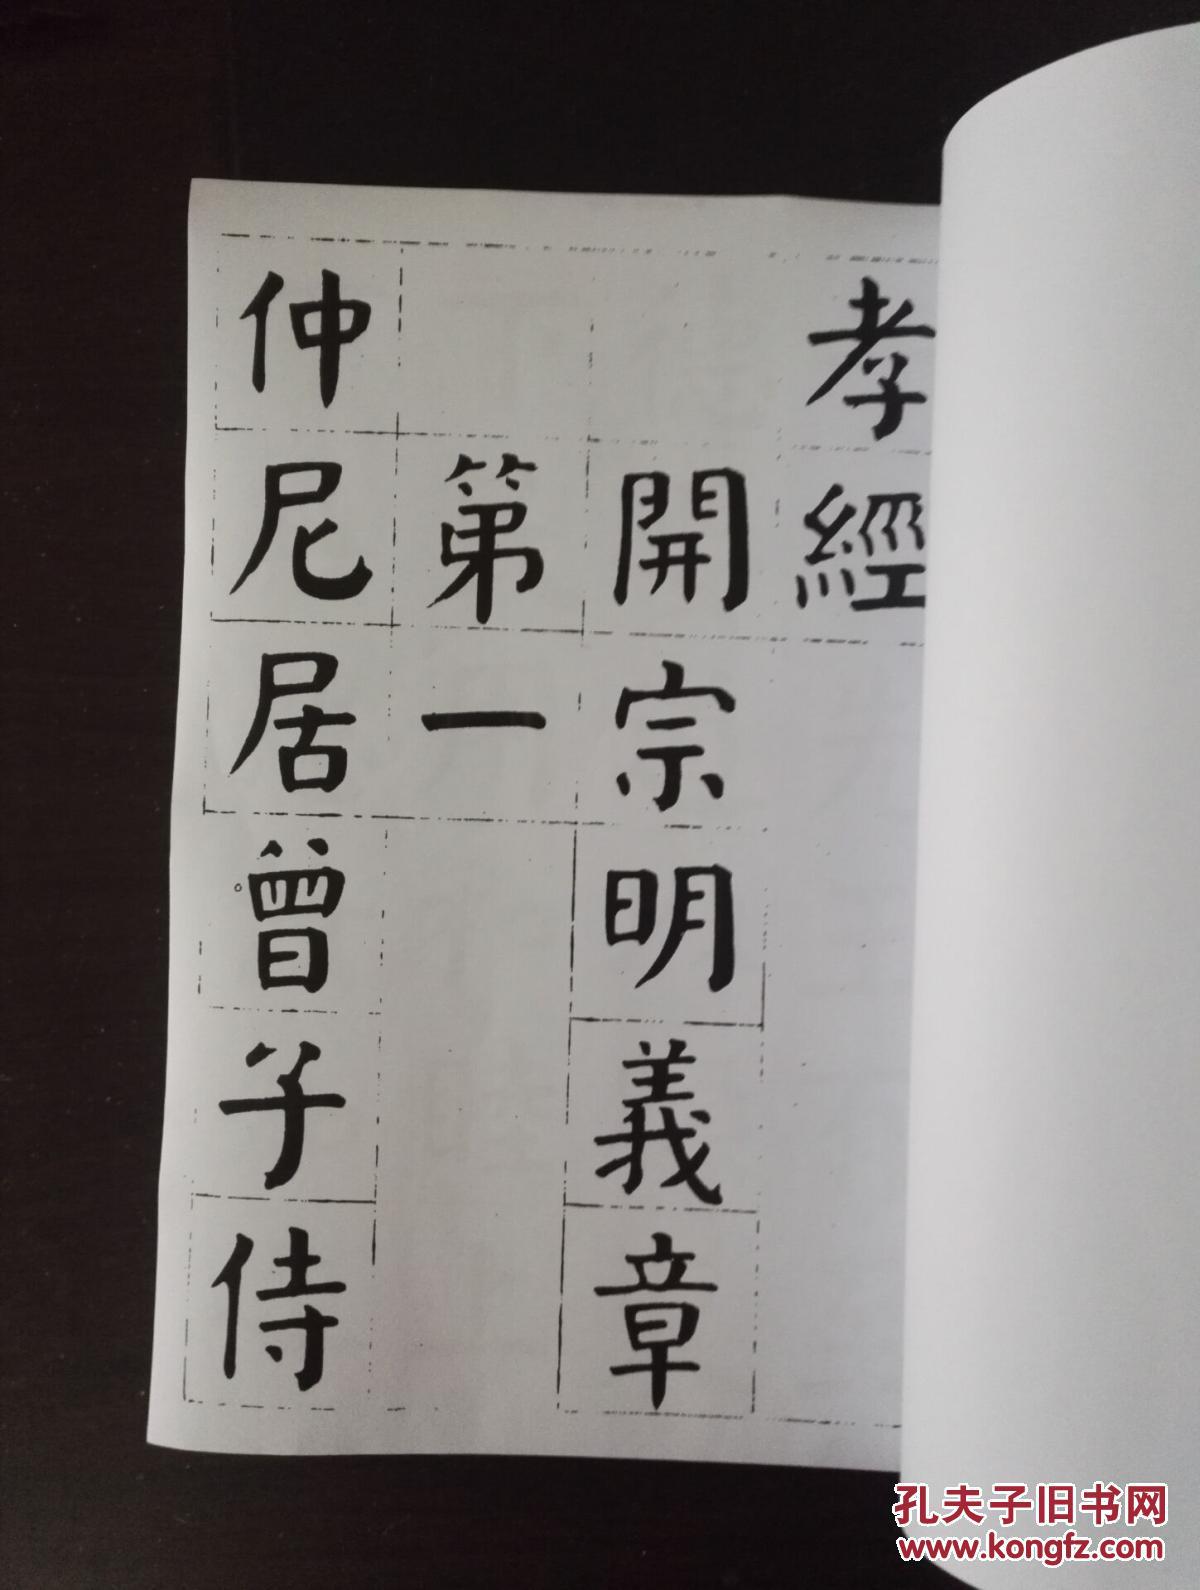 孝經
開宗明義章
第一
仲尼居。曾子侍
孔夫子旧书网
www.kongfz.com